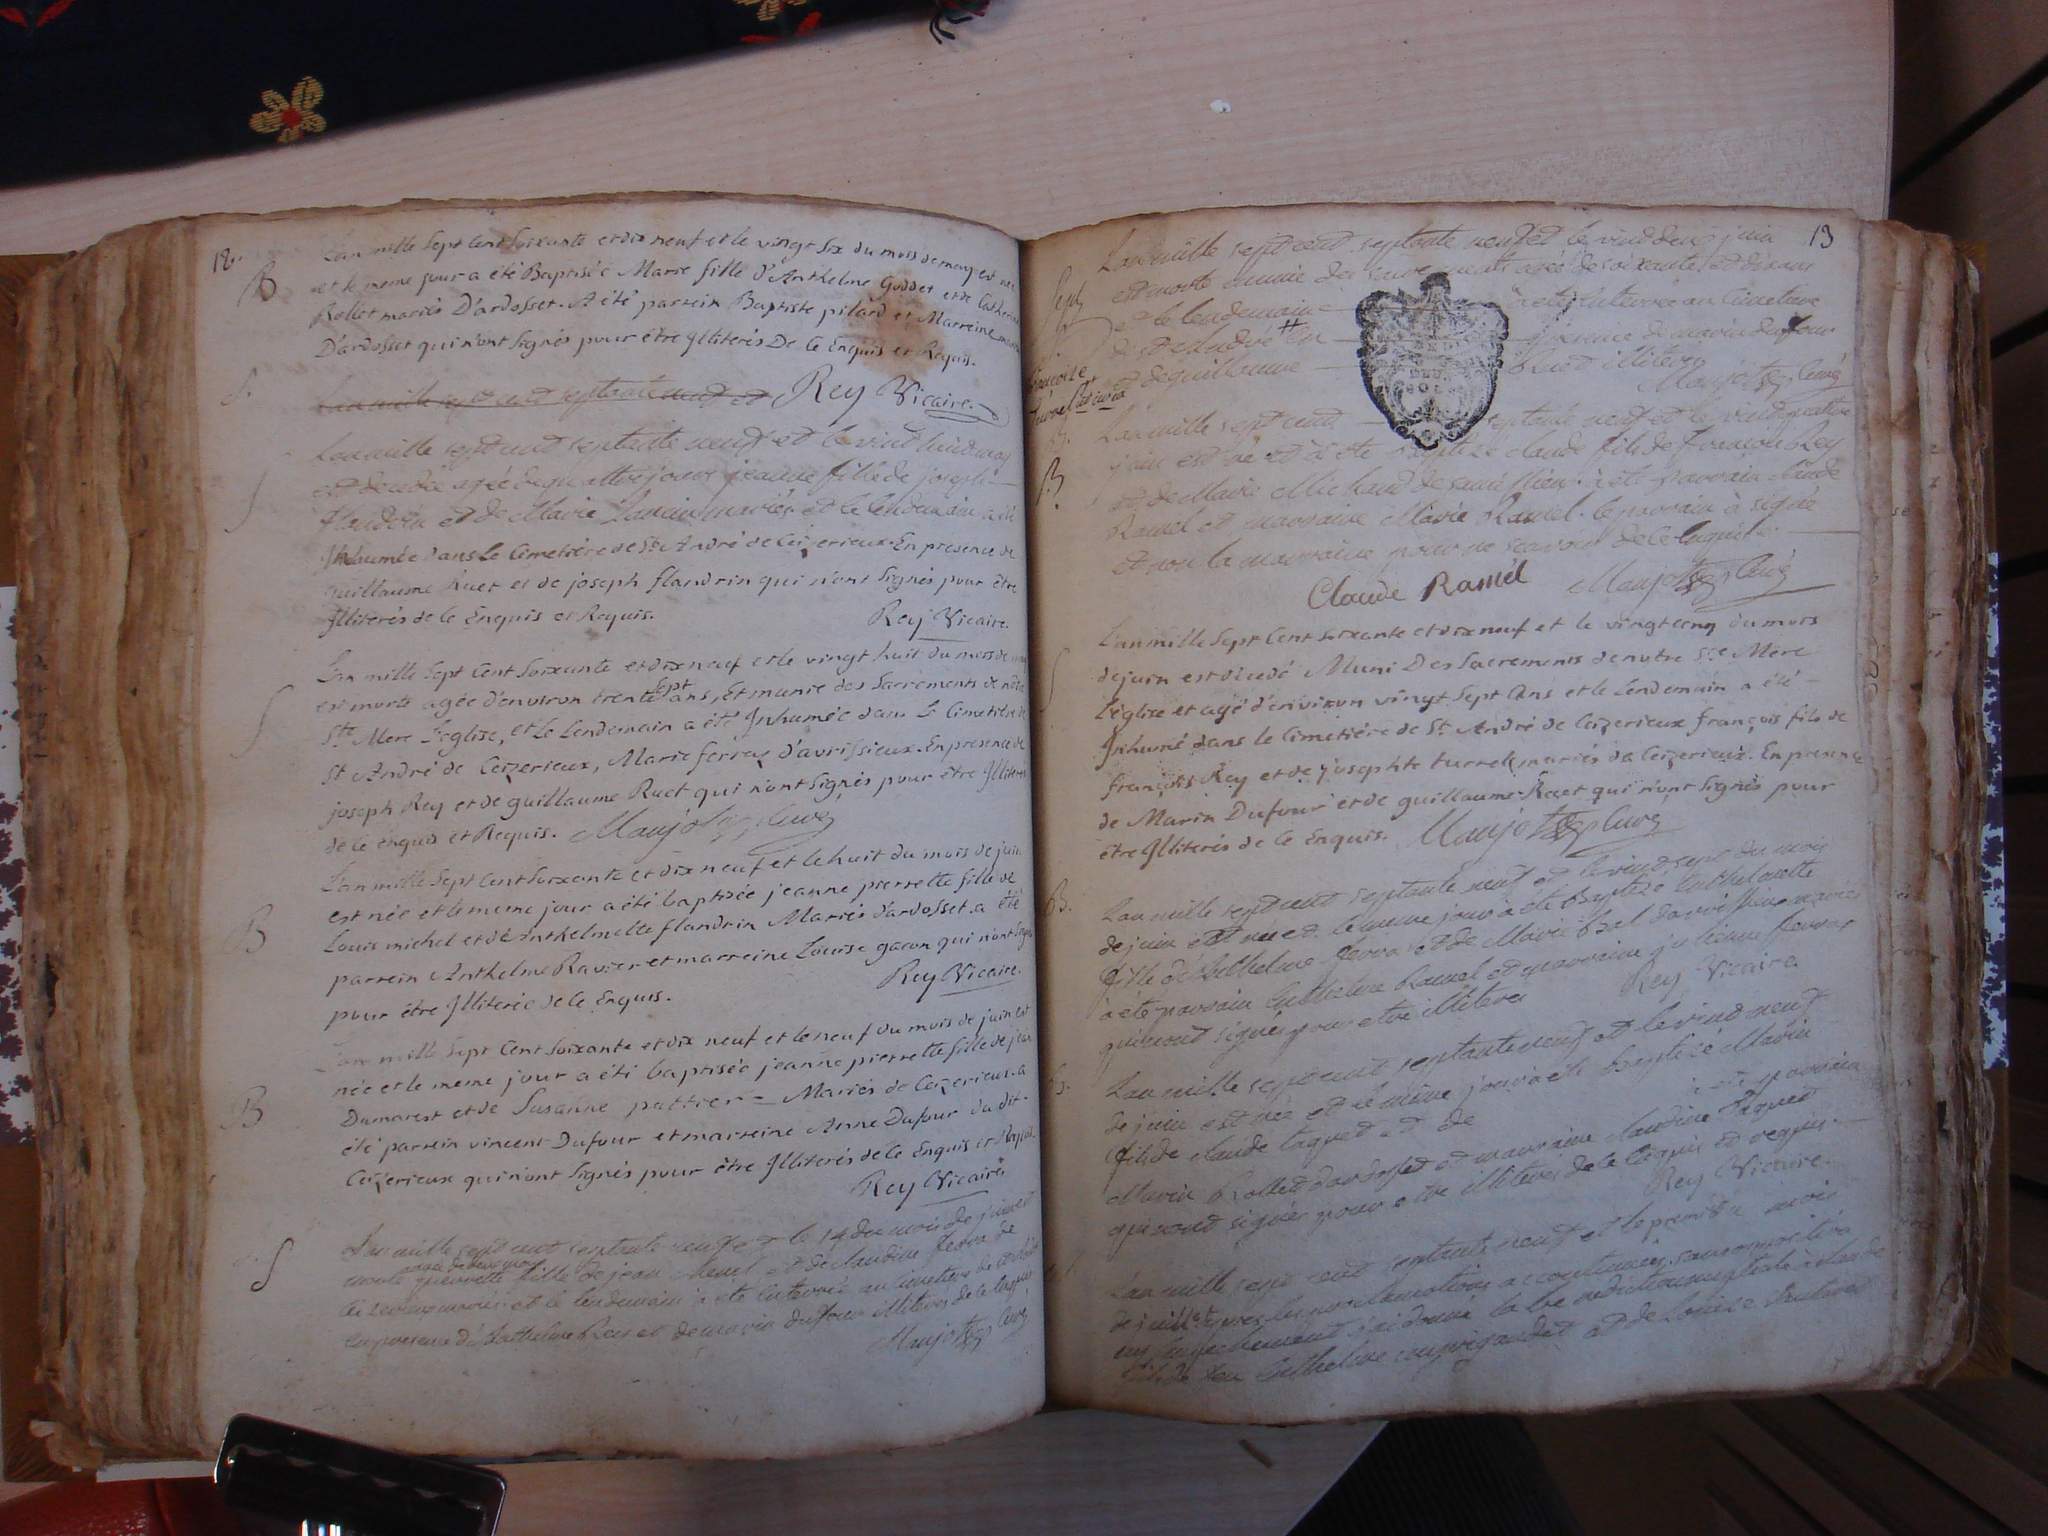 18.
B
L'an mille Sept Cent Soixante et dix neuf et le vingt Six du mois de may est née
et le meme jour a été Baptisée Marie fille d'Anthelme Goddet et de Catherine
Rollet mariés D'ardosset. A été parrein Baptiste pilard et Marreine
D'ardosset qui n'ont Signés pour être Illiterés De Ce Enquis et Requis.
L'an mille sept cent septante neuf et Rey Vicaire.
L'an mille sept cent septante neuf et le vint huid may
est decedée agée de quattre jours jeanne fille de joseph
flandrin et de Marie mariés et le lendemain a été
Inhumée dans Le Cimetiére de St. André de Ceizerieux. En presence de
guillaume Ruet et de joseph flandrin qui n'ont Signés pour être
Illiterés de Ce Enquis et Requis. Rey Vicaire.
L'an mille Sept Cent Soixante et dix neuf et le vingt huit du mois de may
est morte agée d'environ trente sept ans, Et munie des Sacrements de nôtre
Ste. Mere L'eglise, et Le Lendemain a été Inhumée dans Le Cimetiére de
St André de Ceizerieux, Marie ferraz d'avrissieux. En presence de
joseph Rey et de guillaume Ruet qui n'ont Signés pour être Illiterés
de Ce enquis et Requis. Maujot Curé
B
L'an mille Sept Cent Soixante et dix neuf et le huit du mois de juin
est née et le meme jour a été baptisée jeanne pierrette fille de
Louis michel et d'Anthelmette flandrin Mariés d'ardosset. a été
parrein Anthelme Ravier et marreine Louise gacon qui n'ont Signés
pour être Illiterés de Ce Enquis. Rey Vicaire.
B
L'an mille Sept Cent Soixante et dix neuf et le neuf du mois de juin est
née et le meme jour a été baptisée jeanne pierrette fille de jean
Dumarest et de Susanne pattier Mariés de Ceizerieux. a
été parrein vincent Dufour et marreine Anne Dufour du dit
Ceizerieux qui n'ont Signés pour être Illiterés de Ce Enquis et Requis.
Rey Vicaire
S
L'an mille sept cent septante neuf et le 14 du mois de juin est
morte agée de deux mois pierrette fille de jean Menel et de claudine ferra de
Ceizerieux mariés et le lendemain a été enterrée au cimetiere de
en presence d'Anthelme Rey et de marin dufour illiterés de ce enquis
Maujot Curé
13
L'an mille sept cent septante neuf et le vind deux juin
est morte munie des sacrements agée de soixante et dix ans
et le lendemain a été enterrée au cimetiere
de St André en presence de marin dufour
et de guillaume Ruet illiterés
Maujot Curé
B
L'an mille sept cent septante neuf et le vind quattre
juin est né et a été baptizé claude fils de françois Rey
et de Marie Michaud de a été parrain claude
Ramel et marraine Marie Ramel. le parrain à signé
et non la marraine pour ne scavoir de ce enquise.
Claude Ramel Maujot Curé
L'an mille Sept Cent Soixante et dix neuf et le vingt cinq du mois
de juin est décedé Muni Des Sacrements de notre Ste Mere
L'eglise et agé d'environ vingt Sept Ans et le Lendemain a été
Inhumé dans le Cimetiére de St. André de Ceizerieux françois fils de
françois Rey et de josephte turrel mariés de Ceizerieux. En presence
de Marin Dufour et de guillaume Ruet qui n'ont Signés pour
être Illiterés de Ce Enquis. Maujot Curé
B.
L'an mille sept cent septante neuf et le vind sept du mois
de juin est née et le meme jour à été baptizé Anthelmette
fille d'Anthelme ferra et de Marie mariés
à été parrain Anthelme Ramel et marraine julienne ferra
qui n'ont signés pour etre illiteres Rey Vicaire.
B.
L'an mille sept cent septante neuf et le vind neuf
de juin est née et le même jour a été baptizé Marin
fils de claude taquet et de à été parrain
Marin Rollet d'ardosset et marraine claudine taquet
qui n'ont signés pour etre illiteres de ce enquis et requis.
Rey Vicaire.
L'an mille sept cent septante neuf et le premier du mois
de juillet apres les proclamations accoutumées sans opposition
ny empechement j'ai donné la benediction nuptiale à claude
fils de feu Anthelme et de Louise